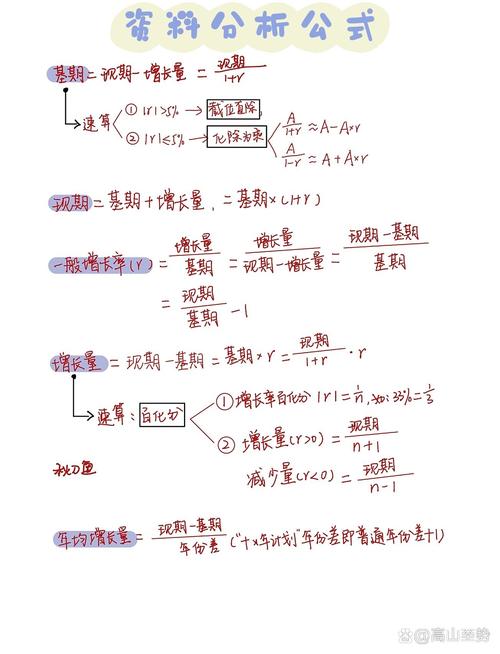 资料分析公式
基期=现期-增长量=现期/1+r
速算 ①|r|>5%→截位直除
②|r|≤5%→化除为乘 A/1+r≈A-A×r
A/1-r≈A+A×r
现期=基期+增长量,=基期×(1+r)
一般增长率(r)=增长量/基期=增长量/现期-增长量=现期-基期/基期
=现期/基期-1
增长量=现期-基期=基期×r=现期/1+r·r
速算:百化分 ①增长率百化分|r|=1/n,如:33%=1/3
②增长量(r>0)=现期/n+1
减少量(r<0)=现期/n-1
年均增长量=现期-基期/年份差("十x年计划"年份差即普通年份差+1)
@高山至势